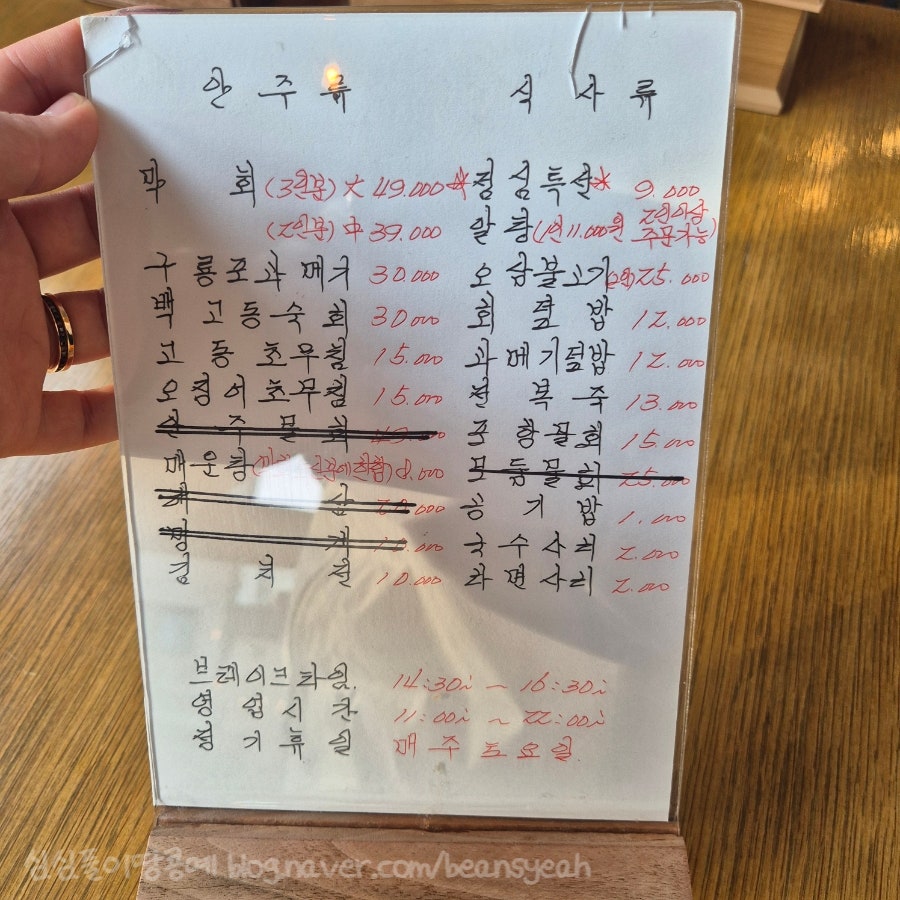 안 주 류
막 회 (3인분) 大 49.000
(2인분) 中 39.000
구룡포과메기 30.000
백고동숙회 30.000
고동초무침 15.000
오징어초무침 15.000
안주물회
매운탕 8.000
20.000
멍 게 10.000
김치전 10.000
식 사 류
*점심특선* 9.000
알탕(1인 11.000원 2인이상
주문가능)
오삼불고기(2인) 25.000
회덮밥 12.000
과메기덮밥 12.000
전복죽 13.000
포항물회 15.000
모듬물회 25.000
공기밥 1.000
국수사리 2.000
라면사리 2.000
브레이크타임 14:30 ~ 16:30
영업시간 11:00 ~ 22:00
정기휴일 매주 토요일
심심풀이땅콩예 blog.naver.com/beansyeah